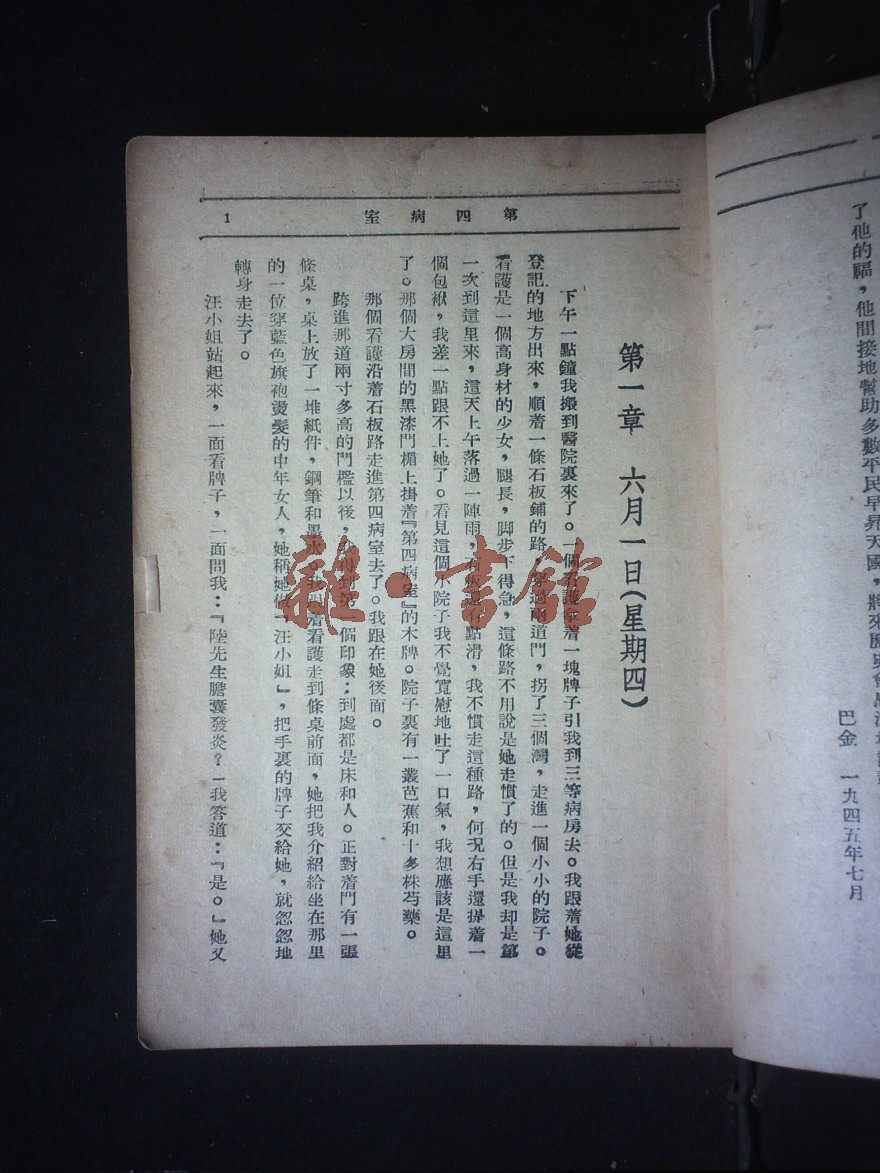 了他的福，他間接地幫助多數平民早昇天國，將來歷史會
巴金　一九四五年七月
第四病室
1
第一章　六月一日（星期四）
下午一點鐘我搬到醫院裏來了。一個看護拿着一塊牌子引我到三等病房去。我跟着她從
登記的地方出來，順着一條石板鋪的路，穿過兩道門，拐了三個灣，走進一個小小的院子。
看護是一個高身材的少女，腿長，脚步下得急，這條路不用說是她走慣了的。但是我却是第
一次到這里來，這天上午落過一陣雨，石板還有點滑，我不慣走這種路，何況右手還提着一
個包袱，我差一點跟不上她了。看見這個小院子我不覺寬慰地吐了一口氣，我想應該是這里
了。那個大房間的黑漆門楣上掛着『第四病室』的木牌。院子裏有一叢芭蕉和十多株芍藥。
那個看護沿着石板路走進第四病室去了。我跟在她後面。
跨進那道兩寸多高的門檻以後，我得到第一個印象；到處都是床和人。正對着門有一張
條桌，桌上放了一堆紙件，鋼筆和墨水。我跟着看護走到條桌前面，她把我介紹給坐在那里
的一位穿藍色旗袍燙髮的中年女人，她稱她做『汪小姐』，把手裏的牌子交給她，就怱怱地
轉身走去了。
汪小姐站起來，一面看牌子，一面問我：『陸先生膽囊發炎？』我答道：『是。』她又
雜·書館